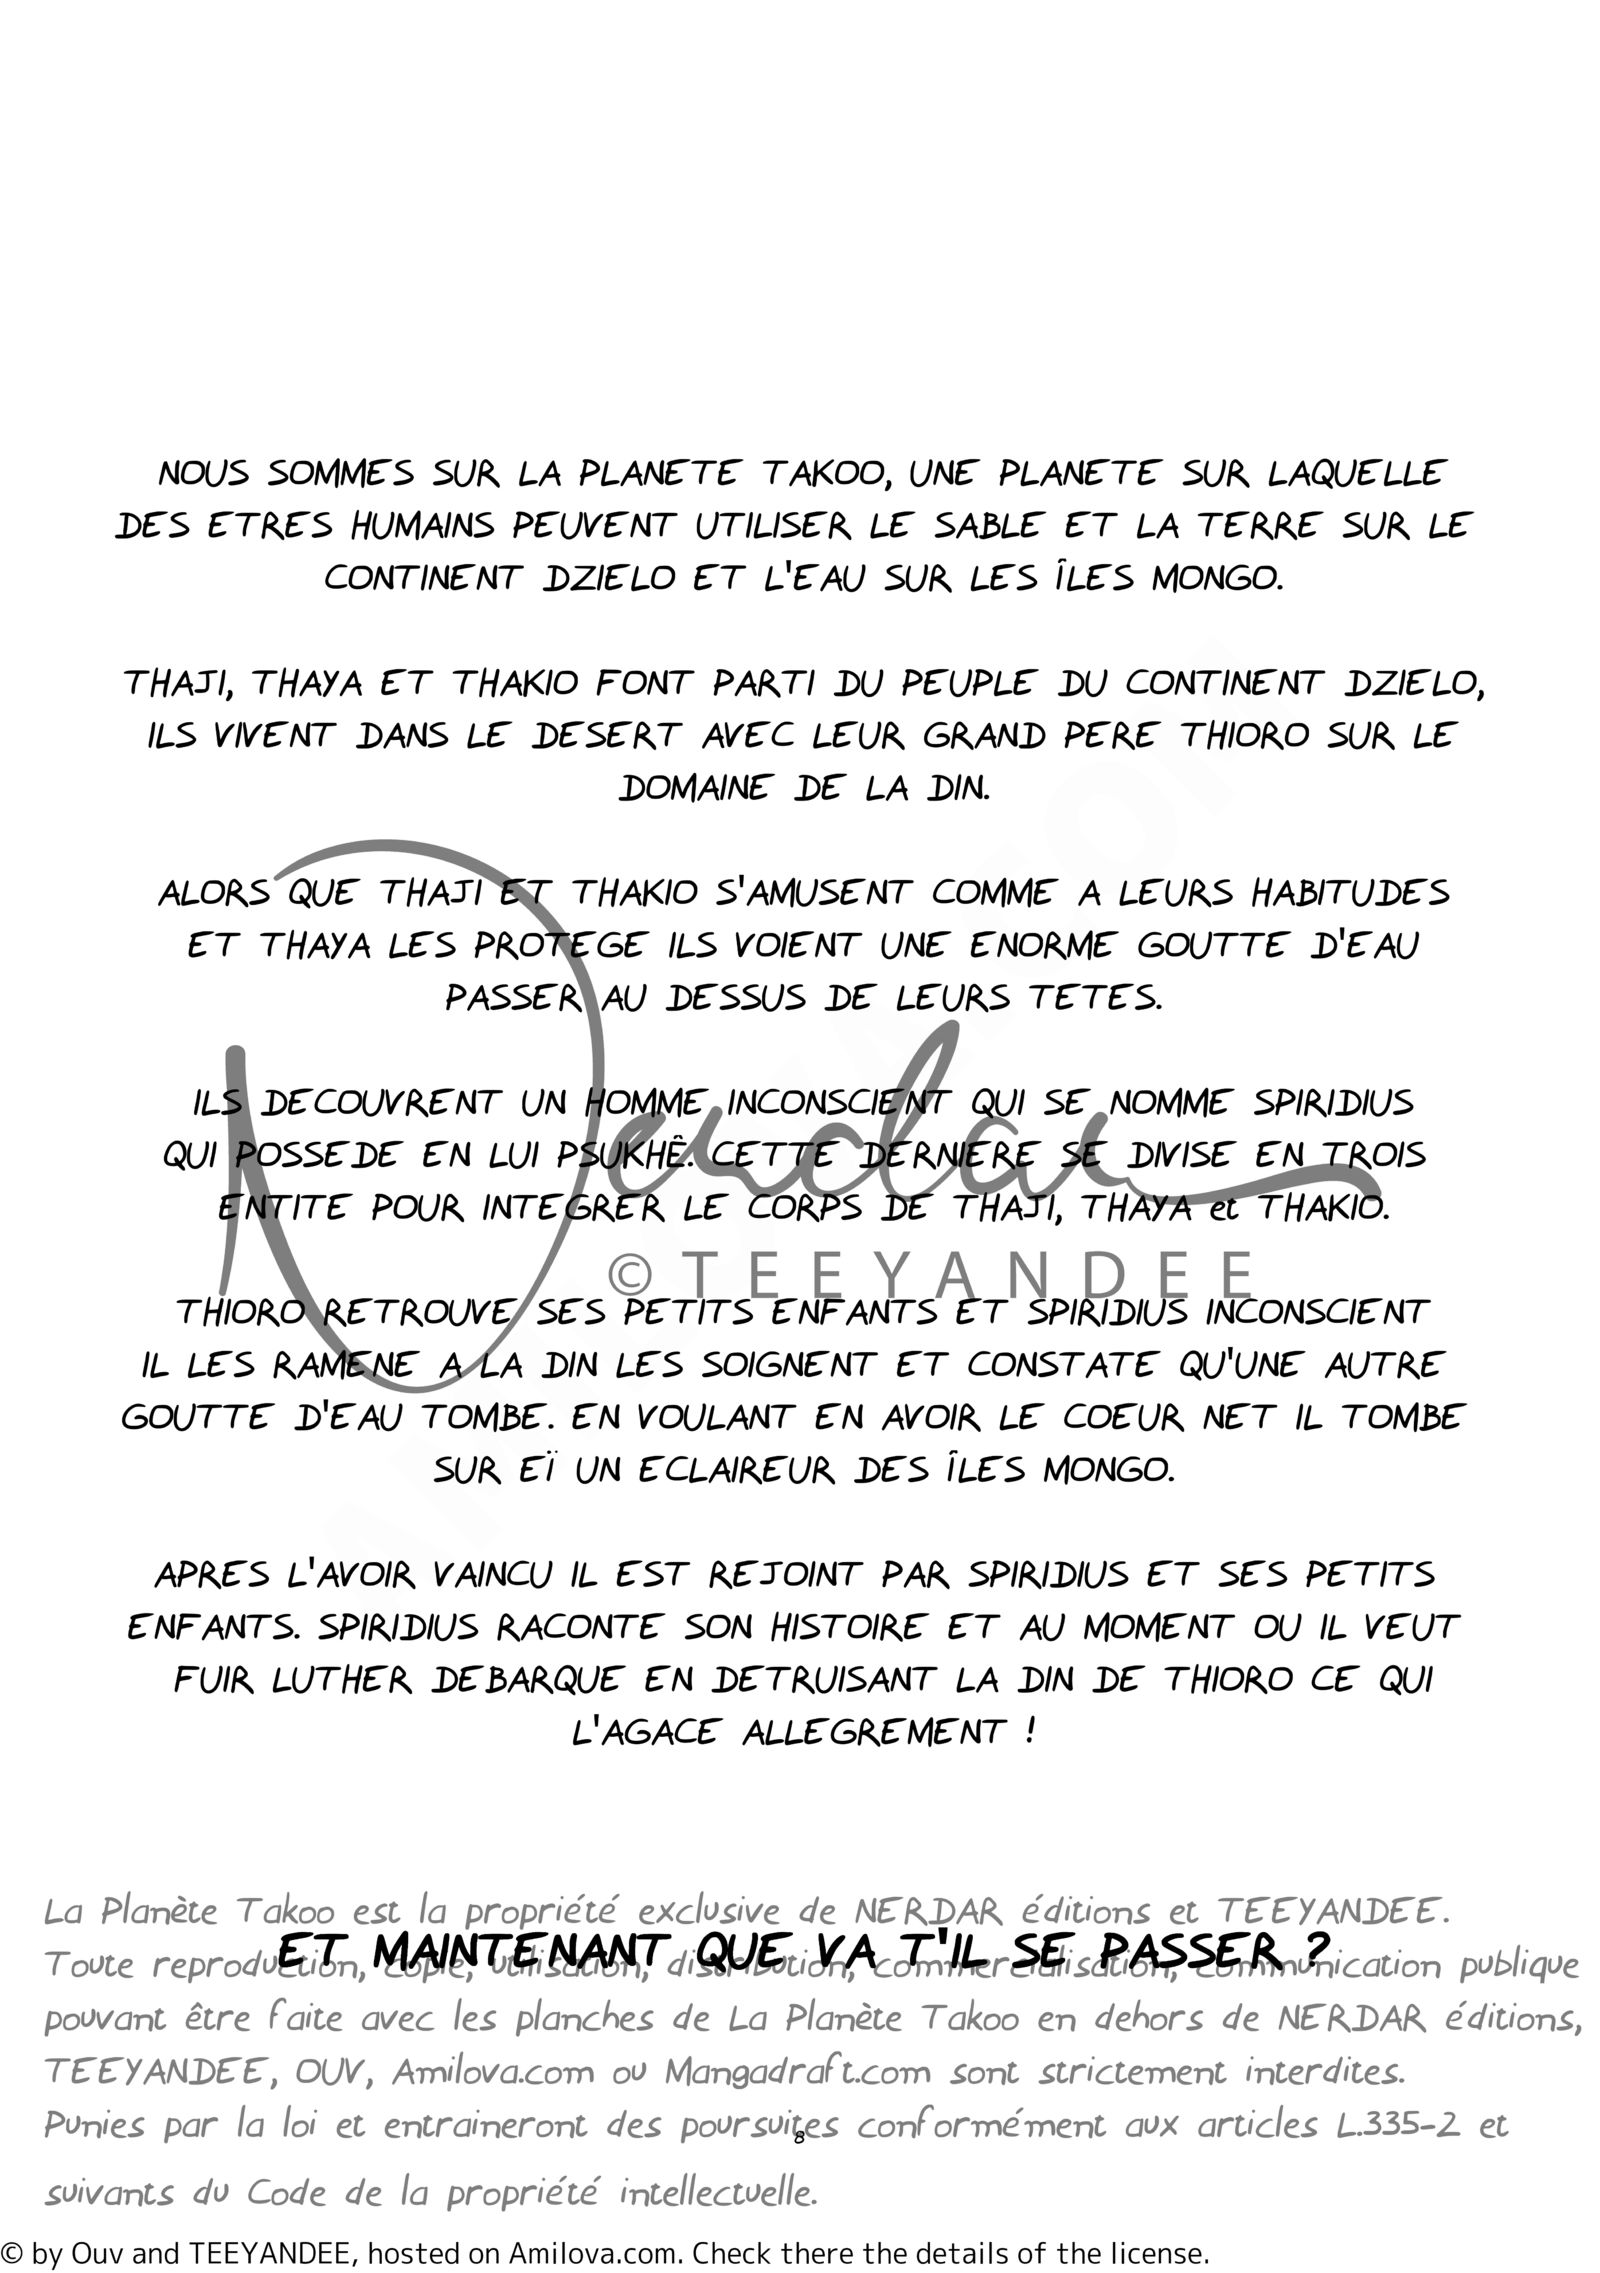 NOUS SOMMES SUR LA PLANETE TAKOO, UNE PLANETE SUR LAQUELLE
DES ETRES HUMAINS PEUVENT UTILISER LE SABLE ET LA TERRE SUR LE
CONTINENT DZIELO ET L'EAU SUR LES ÎLES MONGO.
THAJI, THAYA ET THAKIO FONT PARTI DU PEUPLE DU CONTINENT DZIELO,
ILS VIVENT DANS LE DESERT AVEC LEUR GRAND PERE THIORO SUR LE
DOMAINE DE LA DIN.
ALORS QUE THAJI ET THAKIO S'AMUSENT COMME A LEURS HABITUDES
ET THAYA LES PROTEGE ILS VOIENT UNE ENORME GOUTTE D'EAU
PASSER AU DESSUS DE LEURS TETES.
ILS DECOUVRENT UN HOMME INCONSCIENT QUI SE NOMME SPIRIDIUS
QUI POSSEDE EN LUI PSUKHÊ. CETTE DERNIERE SE DIVISE EN TROIS
ENTITE POUR INTEGRER LE CORPS DE THAJI, THAYA et THAKIO.
© TEEYANDEE
THIORO RETROUVE SES PETITS ENFANTS ET SPIRIDIUS INCONSCIENT
IL LES RAMENE A LA DIN LES SOIGNENT ET CONSTATE QU'UNE AUTRE
GOUTTE D'EAU TOMBE. EN VOULANT EN AVOIR LE COEUR NET IL TOMBE
SUR EÏ UN ECLAIREUR DES ÎLES MONGO.
APRES L'AVOIR VAINCU IL EST REJOINT PAR SPIRIDIUS ET SES PETITS
ENFANTS. SPIRIDIUS RACONTE SON HISTOIRE ET AU MOMENT OU IL VEUT
FUIR LUTHER DEBARQUE EN DETRUISANT LA DIN DE THIORO CE QUI
L'AGACE ALLEGREMENT !
La Planète Takoo est la propriété exclusive de NERDAR éditions et TEEYANDEE.
ET MAINTENANT QUE VA T'IL SE PASSER ?
Toute reproduction, copie, utilisation, distribution, commercialisation, communication publique
pouvant être faite avec les planches de La Planète Takoo en dehors de NERDAR éditions,
TEEYANDEE, OUV, Amilova.com ou Mangadraft.com sont strictement interdites.
Punies par la loi et entraineront des poursuites conformément aux articles L.335-2 et
8
suivants du Code de la propriété intellectuelle.
© by Ouv and TEEYANDEE, hosted on Amilova.com. Check there the details of the license.